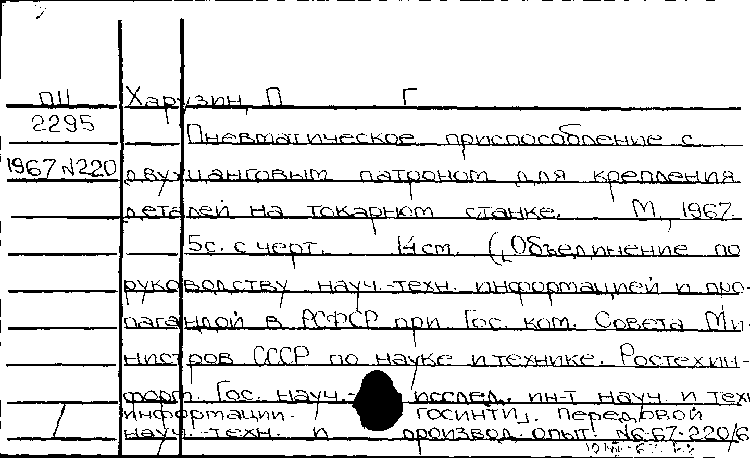 ПН Харузин, П Г
2295 Пневматическое приспособление с
1967 №220 двухцанговым патроном для крепления
деталей на токарном станке. М., 1967.
5с. с черт. 14 см. (Объединение по
руководству науч.-техн. информацией и про-
пагандой в РСФСР при Гос. ком. Совета Ми-
нистров СССР по науке и технике. Ростехин-
форм. Гос. науч.- исслед. ин-т науч. и техн
информации. ГОСИНТИ). Передовой
науч.-техн. и производ. опыт. №6-67-220/6